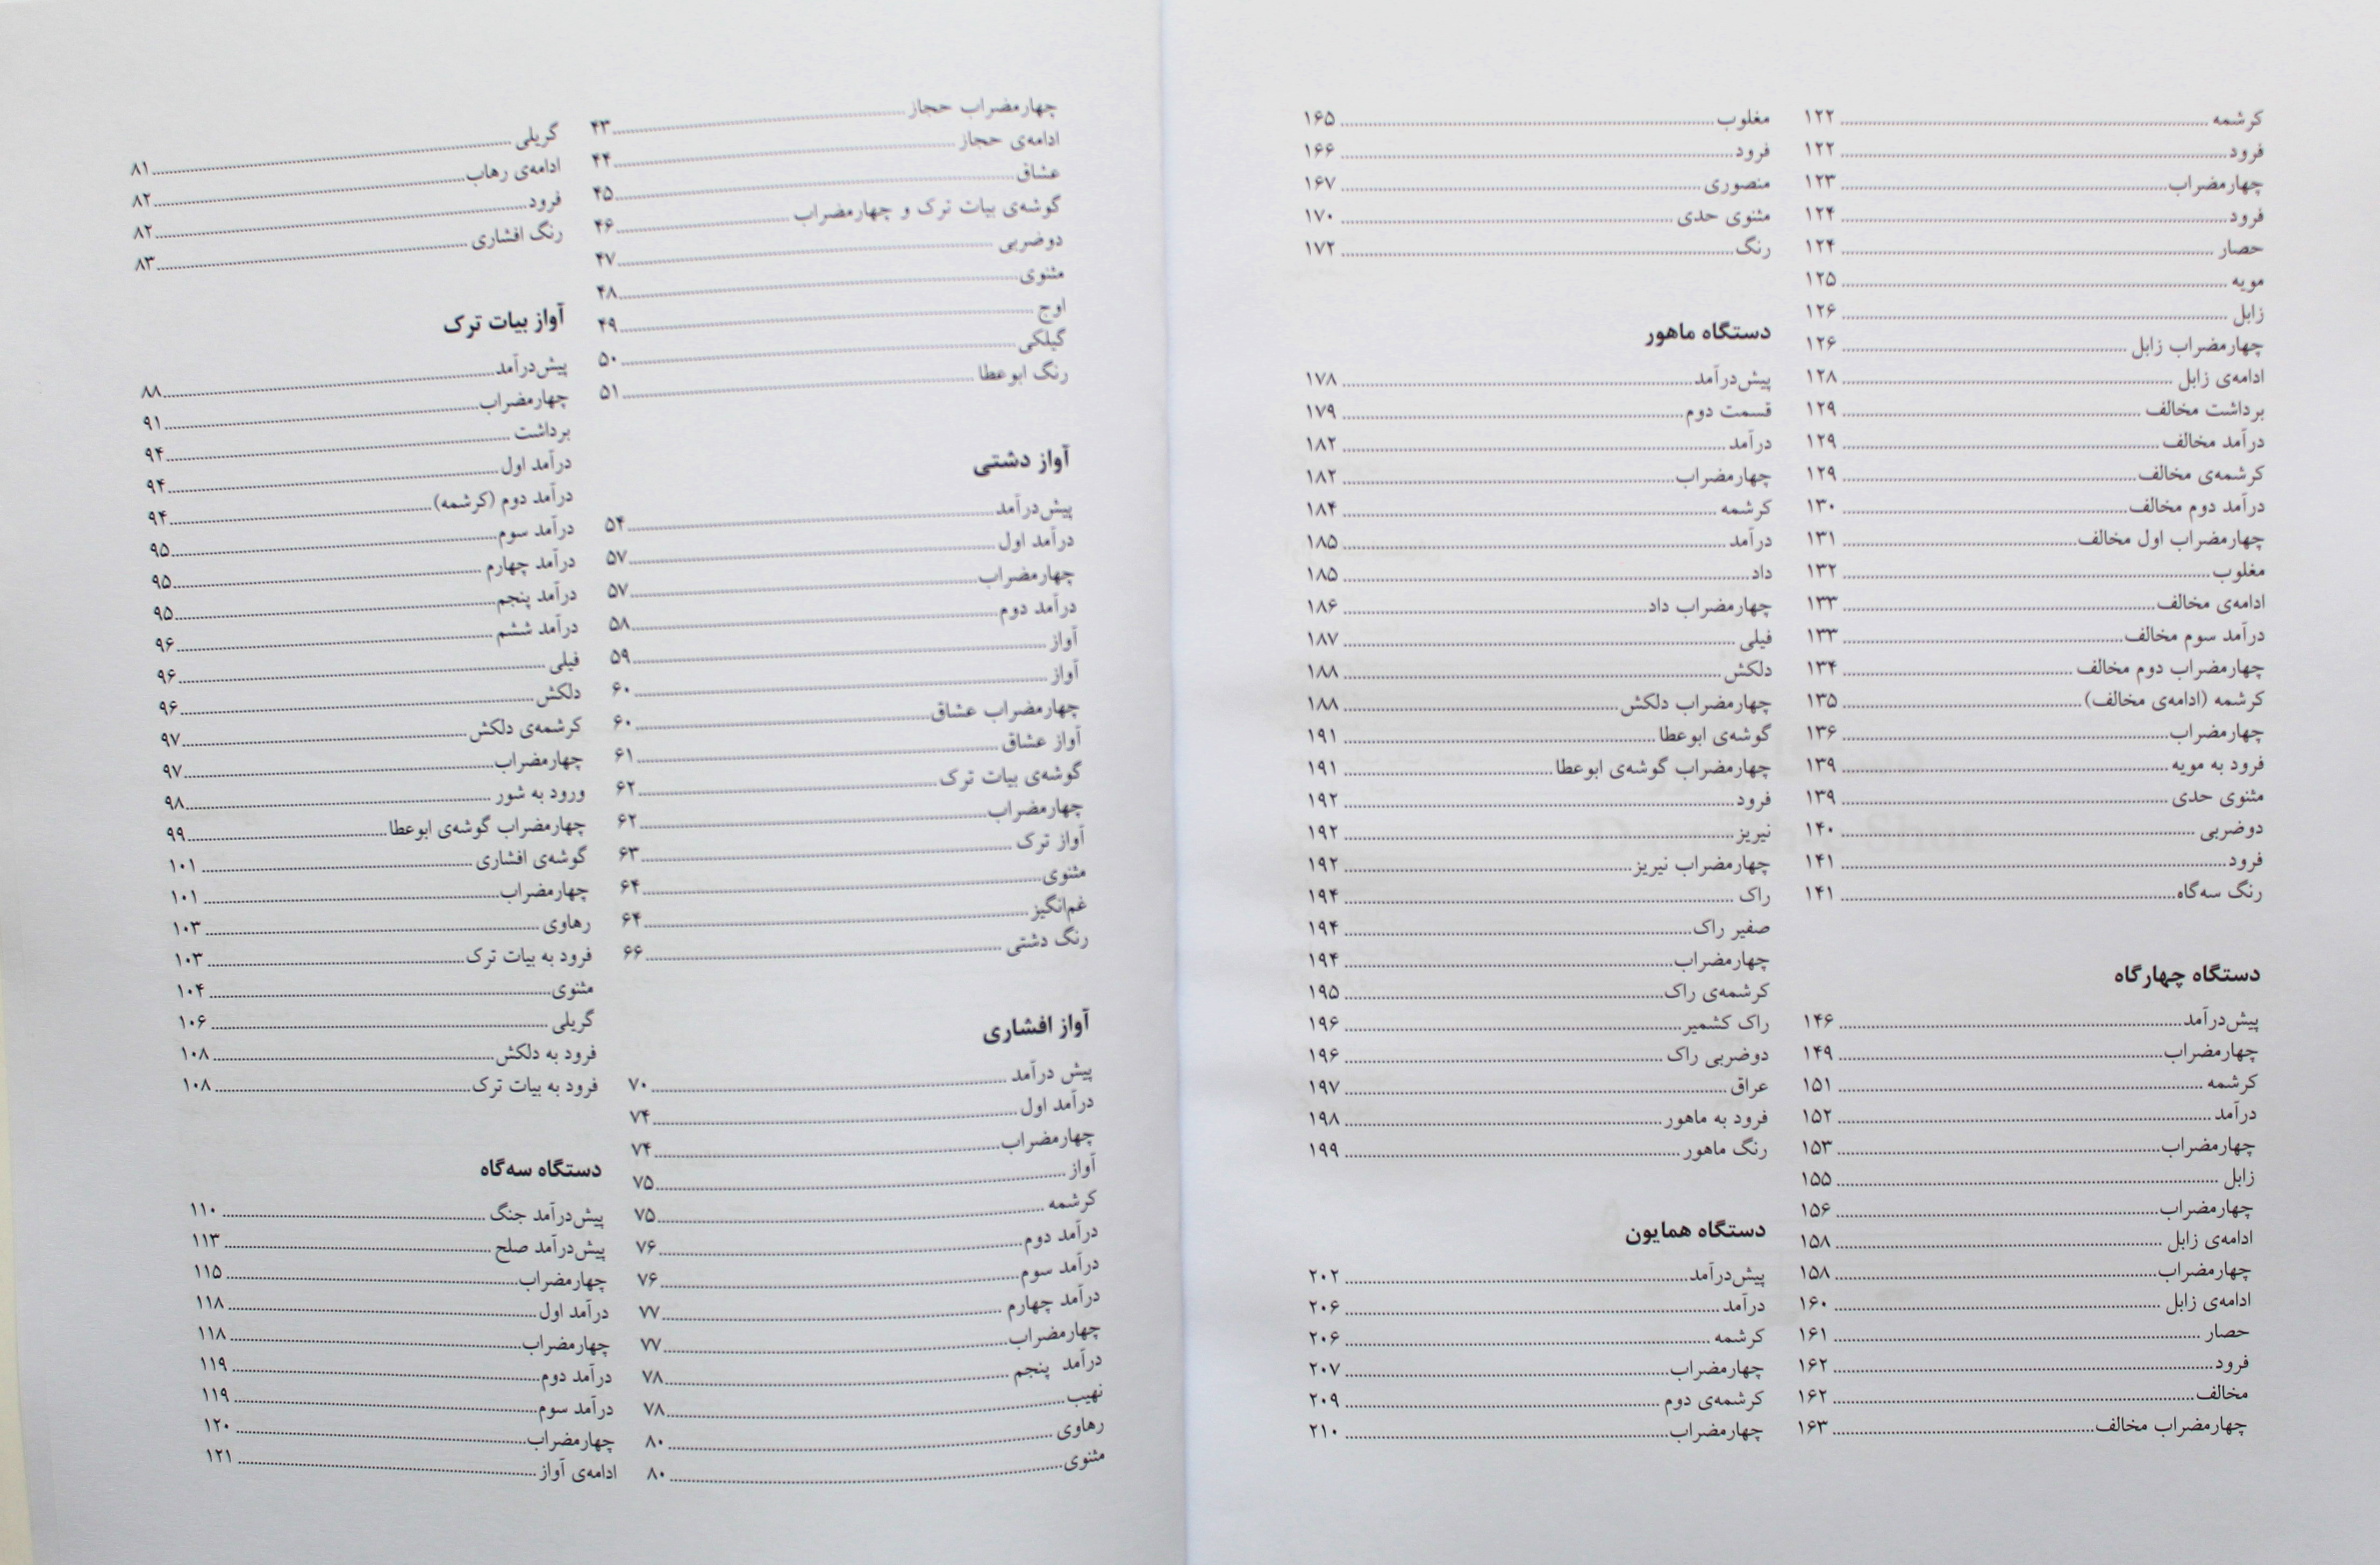 چهارمضراب حجاز ........ ۴۳
ادامه‌ی حجاز ........ ۴۴
عشاق ........ ۴۵
گوشه‌ی بیات ترک و چهارمضراب ........ ۴۶
دوضربی ........ ۴۷
مثنوی ........ ۴۸
اوج ........ ۴۹
گیلکی ........ ۵۰
رنگ ابوعطا ........ ۵۱
آواز دشتی
پیش‌درآمد ........ ۵۴
درآمد اول ........ ۵۷
چهارمضراب ........ ۵۷
درآمد دوم ........ ۵۸
آواز ........ ۵۹
آواز ........ ۶۰
چهارمضراب عشاق ........ ۶۰
آواز عشاق ........ ۶۱
گوشه‌ی بیات ترک ........ ۶۲
چهارمضراب ........ ۶۲
آواز ترک ........ ۶۳
مثنوی ........ ۶۴
غم‌انگیز ........ ۶۴
رنگ دشتی ........ ۶۶
آواز افشاری
پیش درآمد ........ ۷۰
درآمد اول ........ ۷۴
چهارمضراب ........ ۷۴
آواز ........ ۷۵
کرشمه ........ ۷۵
درآمد دوم ........ ۷۶
درآمد سوم ........ ۷۶
درآمد چهارم ........ ۷۷
چهارمضراب ........ ۷۷
درآمد پنجم ........ ۷۸
نهیب ........ ۷۸
رهاوی ........ ۸۰
مثنوی ........ ۸۰
گریلی ........ ۸۱
ادامه‌ی رهاب ........ ۸۲
فرود ........ ۸۲
رنگ افشاری ........ ۸۳
آواز بیات ترک
پیش‌درآمد ........ ۸۸
چهارمضراب ........ ۹۱
برداشت ........ ۹۴
درآمد اول ........ ۹۴
درآمد دوم (کرشمه) ........ ۹۴
درآمد سوم ........ ۹۵
درآمد چهارم ........ ۹۵
درآمد پنجم ........ ۹۵
درآمد ششم ........ ۹۶
فیلی ........ ۹۶
دلکش ........ ۹۶
کرشمه‌ی دلکش ........ ۹۷
چهارمضراب ........ ۹۷
ورود به شور ........ ۹۸
چهارمضراب گوشه‌ی ابوعطا ........ ۹۹
گوشه‌ی افشاری ........ ۱۰۱
چهارمضراب ........ ۱۰۱
رهاوی ........ ۱۰۳
فرود به بیات ترک ........ ۱۰۳
مثنوی ........ ۱۰۴
گریلی ........ ۱۰۶
فرود به دلکش ........ ۱۰۸
فرود به بیات ترک ........ ۱۰۸
دستگاه سه‌گاه
پیش‌درآمد جنگ ........ ۱۱۰
پیش‌درآمد صلح ........ ۱۱۳
چهارمضراب ........ ۱۱۵
درآمد اول ........ ۱۱۸
چهارمضراب ........ ۱۱۸
درآمد دوم ........ ۱۱۹
درآمد سوم ........ ۱۱۹
چهارمضراب ........ ۱۲۰
ادامه‌ی آواز ........ ۱۲۱
کرشمه ........ ۱۲۲
فرود ........ ۱۲۲
چهارمضراب ........ ۱۲۳
فرود ........ ۱۲۴
حصار ........ ۱۲۴
مویه ........ ۱۲۵
زابل ........ ۱۲۶
چهارمضراب زابل ........ ۱۲۶
ادامه‌ی زابل ........ ۱۲۸
برداشت مخالف ........ ۱۲۹
درآمد مخالف ........ ۱۲۹
کرشمه‌ی مخالف ........ ۱۲۹
درآمد دوم مخالف ........ ۱۳۰
چهارمضراب اول مخالف ........ ۱۳۱
مغلوب ........ ۱۳۲
ادامه‌ی مخالف ........ ۱۳۳
درآمد سوم مخالف ........ ۱۳۳
چهارمضراب دوم مخالف ........ ۱۳۴
کرشمه (ادامه‌ی مخالف) ........ ۱۳۵
چهارمضراب ........ ۱۳۶
فرود به مویه ........ ۱۳۹
مثنوی حدی ........ ۱۳۹
دوضربی ........ ۱۴۰
فرود ........ ۱۴۱
رنگ سه‌گاه ........ ۱۴۱
دستگاه چهارگاه
پیش‌درآمد ........ ۱۴۶
چهارمضراب ........ ۱۴۹
کرشمه ........ ۱۵۱
درآمد ........ ۱۵۲
چهارمضراب ........ ۱۵۳
زابل ........ ۱۵۵
چهارمضراب ........ ۱۵۶
ادامه‌ی زابل ........ ۱۵۸
چهارمضراب ........ ۱۵۸
ادامه‌ی زابل ........ ۱۶۰
حصار ........ ۱۶۱
فرود ........ ۱۶۲
مخالف ........ ۱۶۲
چهارمضراب مخالف ........ ۱۶۳
مغلوب ........ ۱۶۵
فرود ........ ۱۶۶
منصوری ........ ۱۶۷
مثنوی حدی ........ ۱۷۰
رنگ ........ ۱۷۲
دستگاه ماهور
پیش‌درآمد ........ ۱۷۸
قسمت دوم ........ ۱۷۹
درآمد ........ ۱۸۲
چهارمضراب ........ ۱۸۲
کرشمه ........ ۱۸۴
درآمد ........ ۱۸۵
داد ........ ۱۸۵
چهارمضراب داد ........ ۱۸۶
فیلی ........ ۱۸۷
دلکش ........ ۱۸۸
چهارمضراب دلکش ........ ۱۸۸
گوشه‌ی ابوعطا ........ ۱۹۱
چهارمضراب گوشه‌ی ابوعطا ........ ۱۹۱
فرود ........ ۱۹۲
نیریز ........ ۱۹۲
چهارمضراب نیریز ........ ۱۹۲
راک ........ ۱۹۴
صفیر راک ........ ۱۹۴
چهارمضراب ........ ۱۹۴
کرشمه‌ی راک ........ ۱۹۵
راک کشمیر ........ ۱۹۶
دوضربی راک ........ ۱۹۶
عراق ........ ۱۹۷
فرود به ماهور ........ ۱۹۸
رنگ ماهور ........ ۱۹۹
دستگاه همایون
پیش‌درآمد ........ ۲۰۲
درآمد ........ ۲۰۶
کرشمه ........ ۲۰۶
چهارمضراب ........ ۲۰۷
کرشمه‌ی دوم ........ ۲۰۹
چهارمضراب ........ ۲۱۰